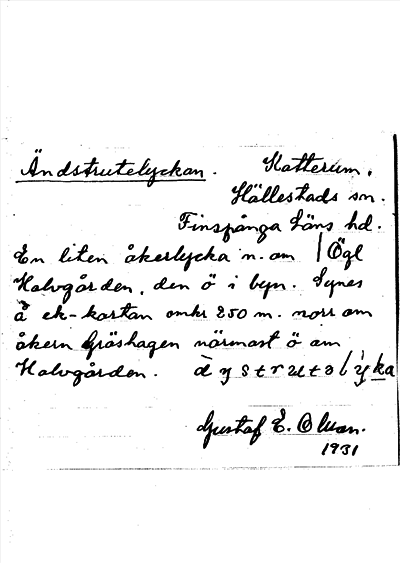 Ändstrutelyckan. Katterum,
Hällestads sn.
Finspånga läns hd.
En liten åkerlycka n. om | Ögl
Halvgården, den ö i byn. Synes
å ek-kartan omkr 250 m. norr om
åkern Gräshagen närmast ö om
Halvgården.
Gustaf E. Olson.
1931